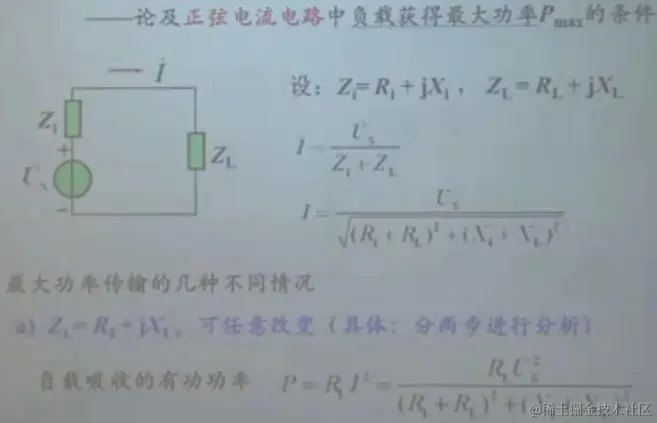 ——论及正弦电流电路中负载获得最大功率Pmax的条件
İ
Zi
+
U̇s
-
ZL
设：Zi=Ri+jXi，ZL=RL+jXL
İ=U̇s/(Zi+ZL)
I=Us/√((Ri+RL)²+(Xi+XL)²)
最大功率传输的几种不同情况
a) ZL=RL+jXL，可任意改变（具体：分两步进行分析）
负载吸收的有功功率 P=RLI²=RLUs²/((Ri+RL)²+(Xi+XL)²)
@稀土掘金技术社区